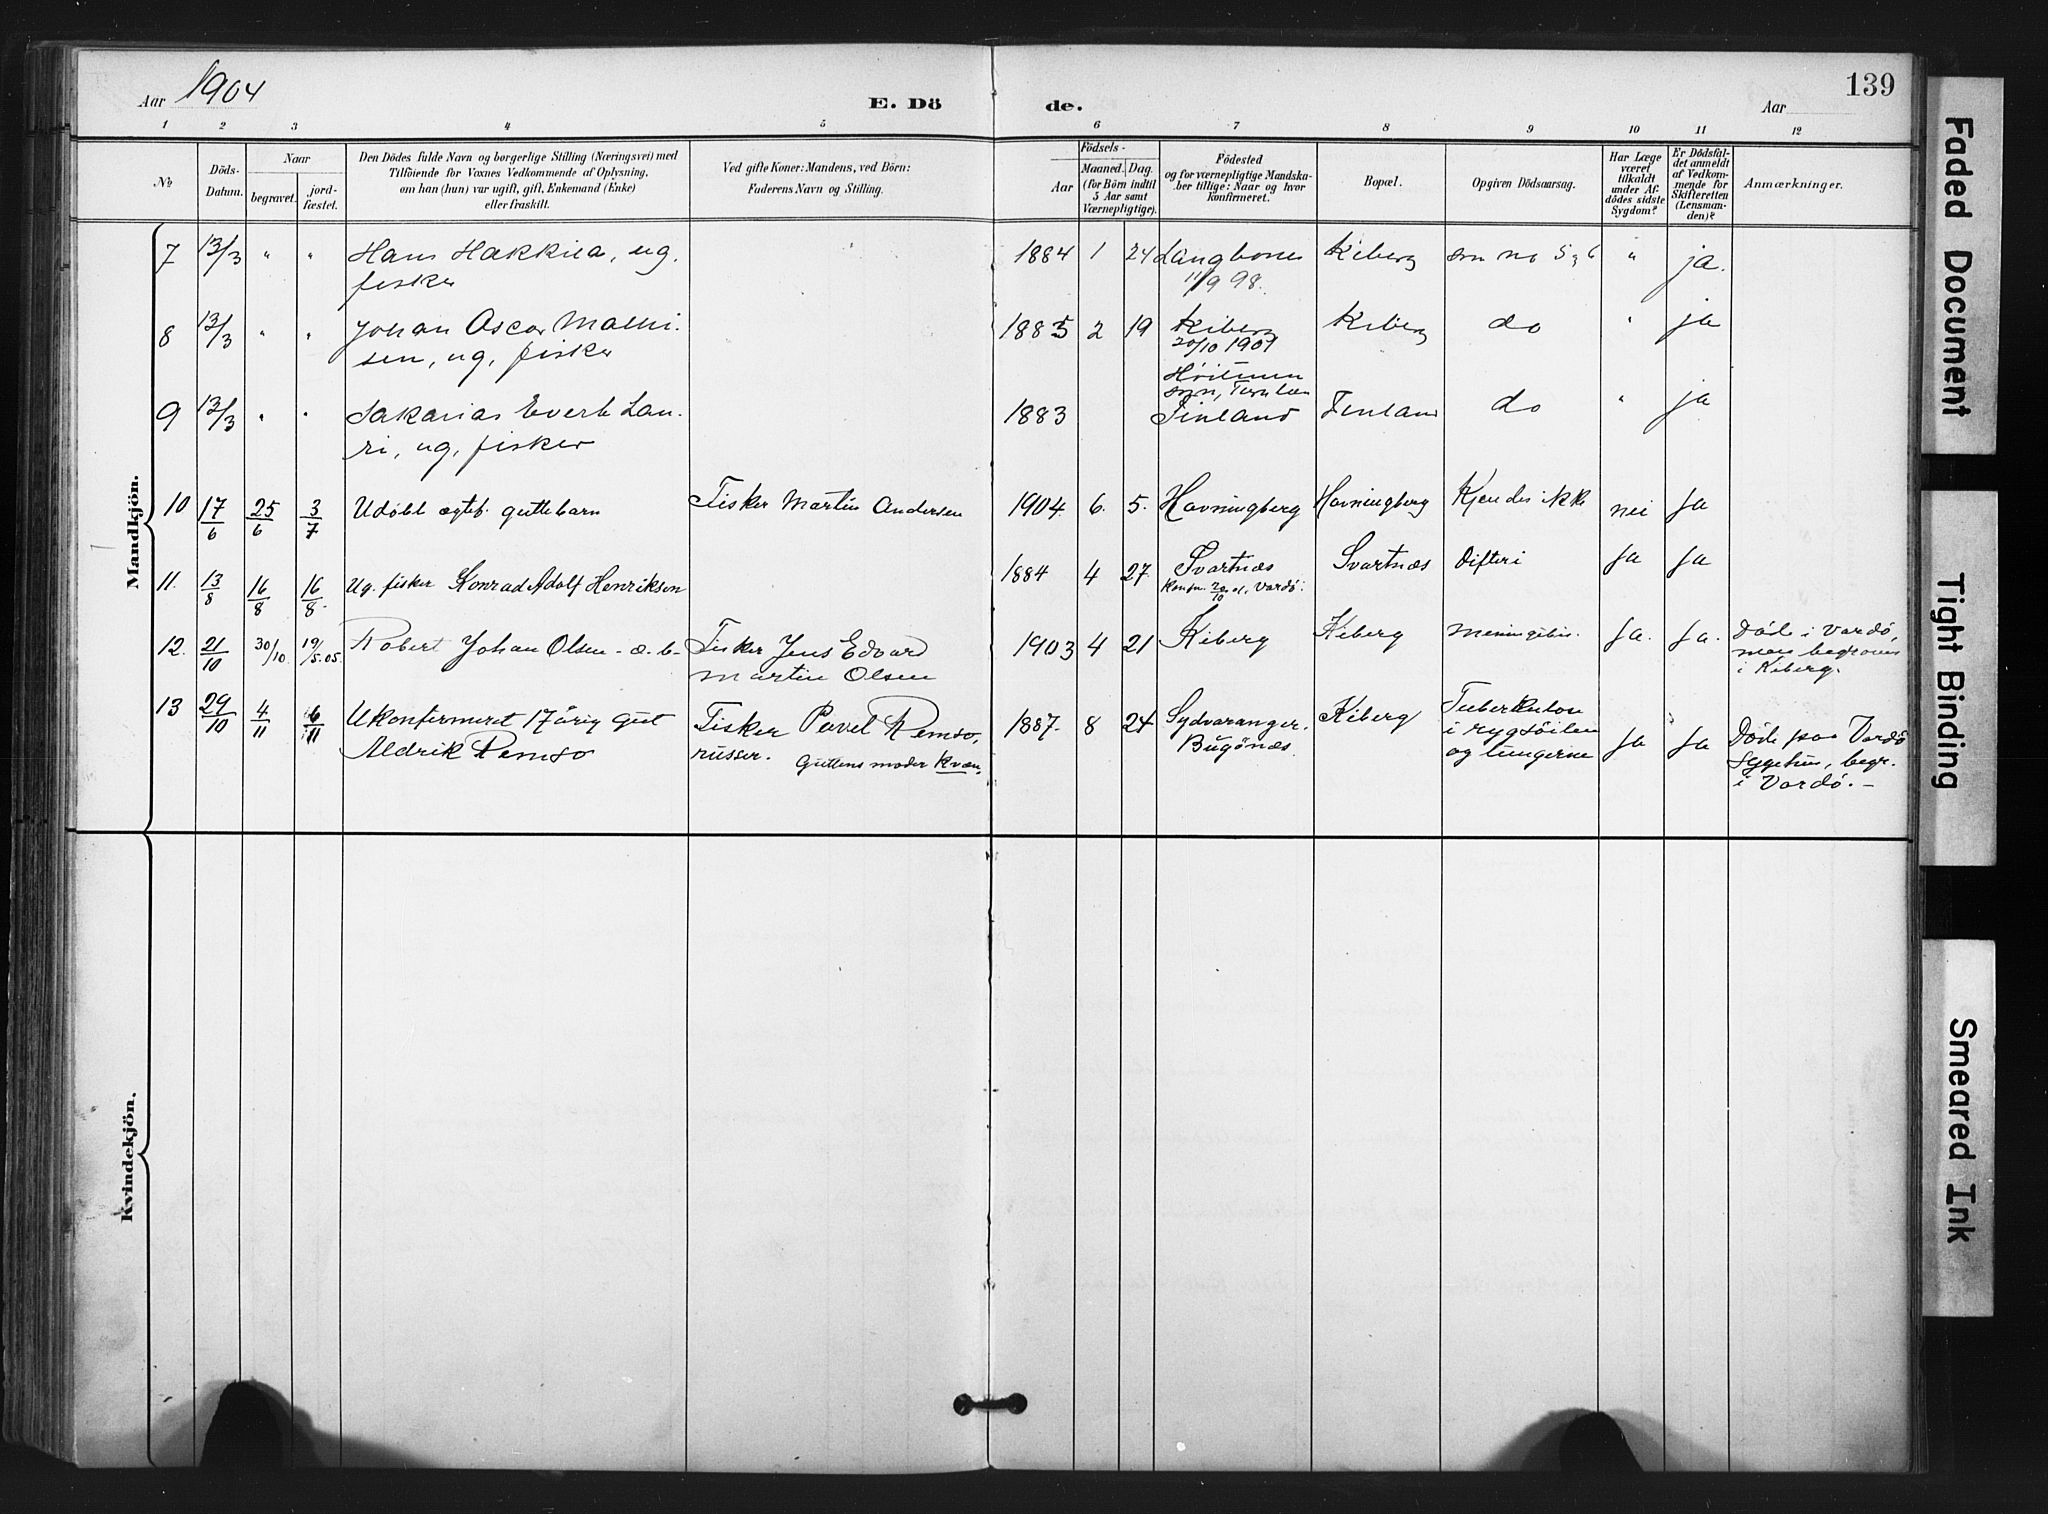 Aar 1904
E. Döde.
Aar
139
1 2 3 4 5 6 7 8 9 10 11 12
No
Döds-
Datum.
Naar
begravet.
jord-
fæstet.
Den Dödes fulde Navn og borgerlige Stilling (Næringsvei) med
Tilföiende for Voxnes Vedkommende af Oplysning,
om han (hun) var ugift, gift, Enkemand (Enke)
eller fraskilt.
Ved gifte Koner: Mandens, ved Börn:
Faderens Navn og Stilling.
Födsels-
Aar
Maaned. Dag.
(for Börn indtil
5 Aar samt
Værnepligtige).
Födested
og for værnepligtige Mandska-
ber tillige: Naar og hvor
konfirmeret.
Bopæl.
Opgiven Dödsaarsag.
Har Læge
været
tilkaldt
under Af-
dödes sidste
Sygdom?
Er Dödsfal-
det anmeldt
af Vedkom-
mende for
Skifteretten
(Lensman-
den)?
Anmærkninger.
Mandkjön.
7 13/3 " " Hans Hakkila, ug. 1884 1 24 Langbones Kiberg som no 5 & 6 " ja.
fisker 11/9 98.
8 13/3 " " Johan Oscar Mathi- 1885 2 19 Kiberg Kiberg do " ja
sen, ug, fisker 20/10 1901
9 13/3 " " Sakarias Evert Lau- 1883 Finland Finland do " ja
ri, ug, fisker
10 17/6 25/6 3/7 Udöbt ægtef. guttebarn Fisker Martin Andersen 1904. 6. 5. Havningberg Havningberg Kjendes ikke nei Ja
11. 13/8 16/8 16/8. Ug. fisker Konrad Adolf Henriksen 1884 4 27. Svartnæs Svartnæs Difteri Ja Ja
12. 21/10 30/10. 19/5.05. Robert Johan Olsen - æ. b - Fisker Jens Edvard 1903 4 21 Kiberg Kiberg Meningitis. Ja. Ja. Döde i Vardö,
Martin Olsen men begraves
i Kiberg.
13 29/10 4/11 6/11 Ukonfirmeret 17 årig gut Fisker Pavel Remso, 1887. 8 24 Sydvaranger. Kiberg Tuberkulose Ja Ja Döde paa Vardö
Aldrik Remso russer. Guttens moder kvæn. Bugönæs. i rygsöilen sygehus, begr.
og lungerne i Vardö. -
Kvindekjön.
Faded Document
Tight Binding
Smeared Ink